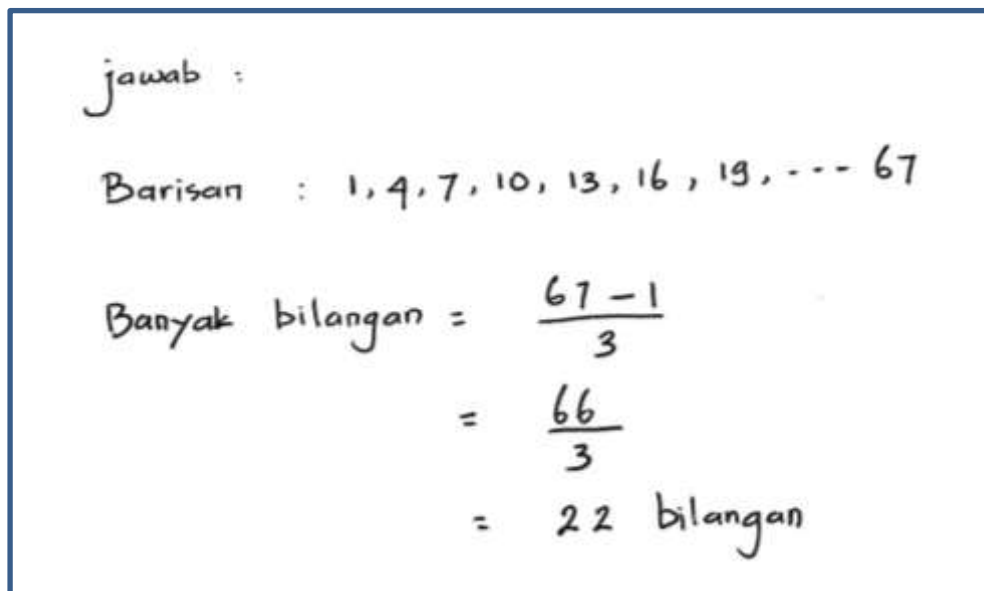 jawab :
Barisan : 1, 4, 7, 10, 13, 16, 19, ... 67
Banyak bilangan = 67 - 1
3
= 66
3
= 22 bilangan